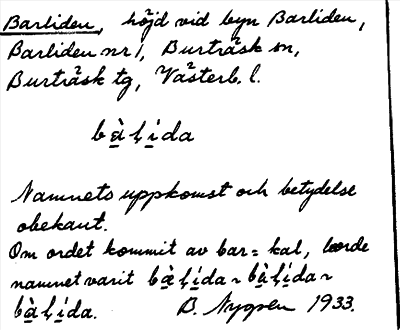 Barliden, höjd vid byn Barliden,
Barliden nr 1, Burträsk sn,
Burträsk tg, Västerb. l.
bà̱ḷí̱da
Namnets uppkomst och betydelse
obekant.
Om ordet kommit av bar = kal, borde
namnet varit bæ̱ḷí̱da ~ bà̱ḷí̱da ~
bà̱ḷí̱da. B. Nygren 1933.